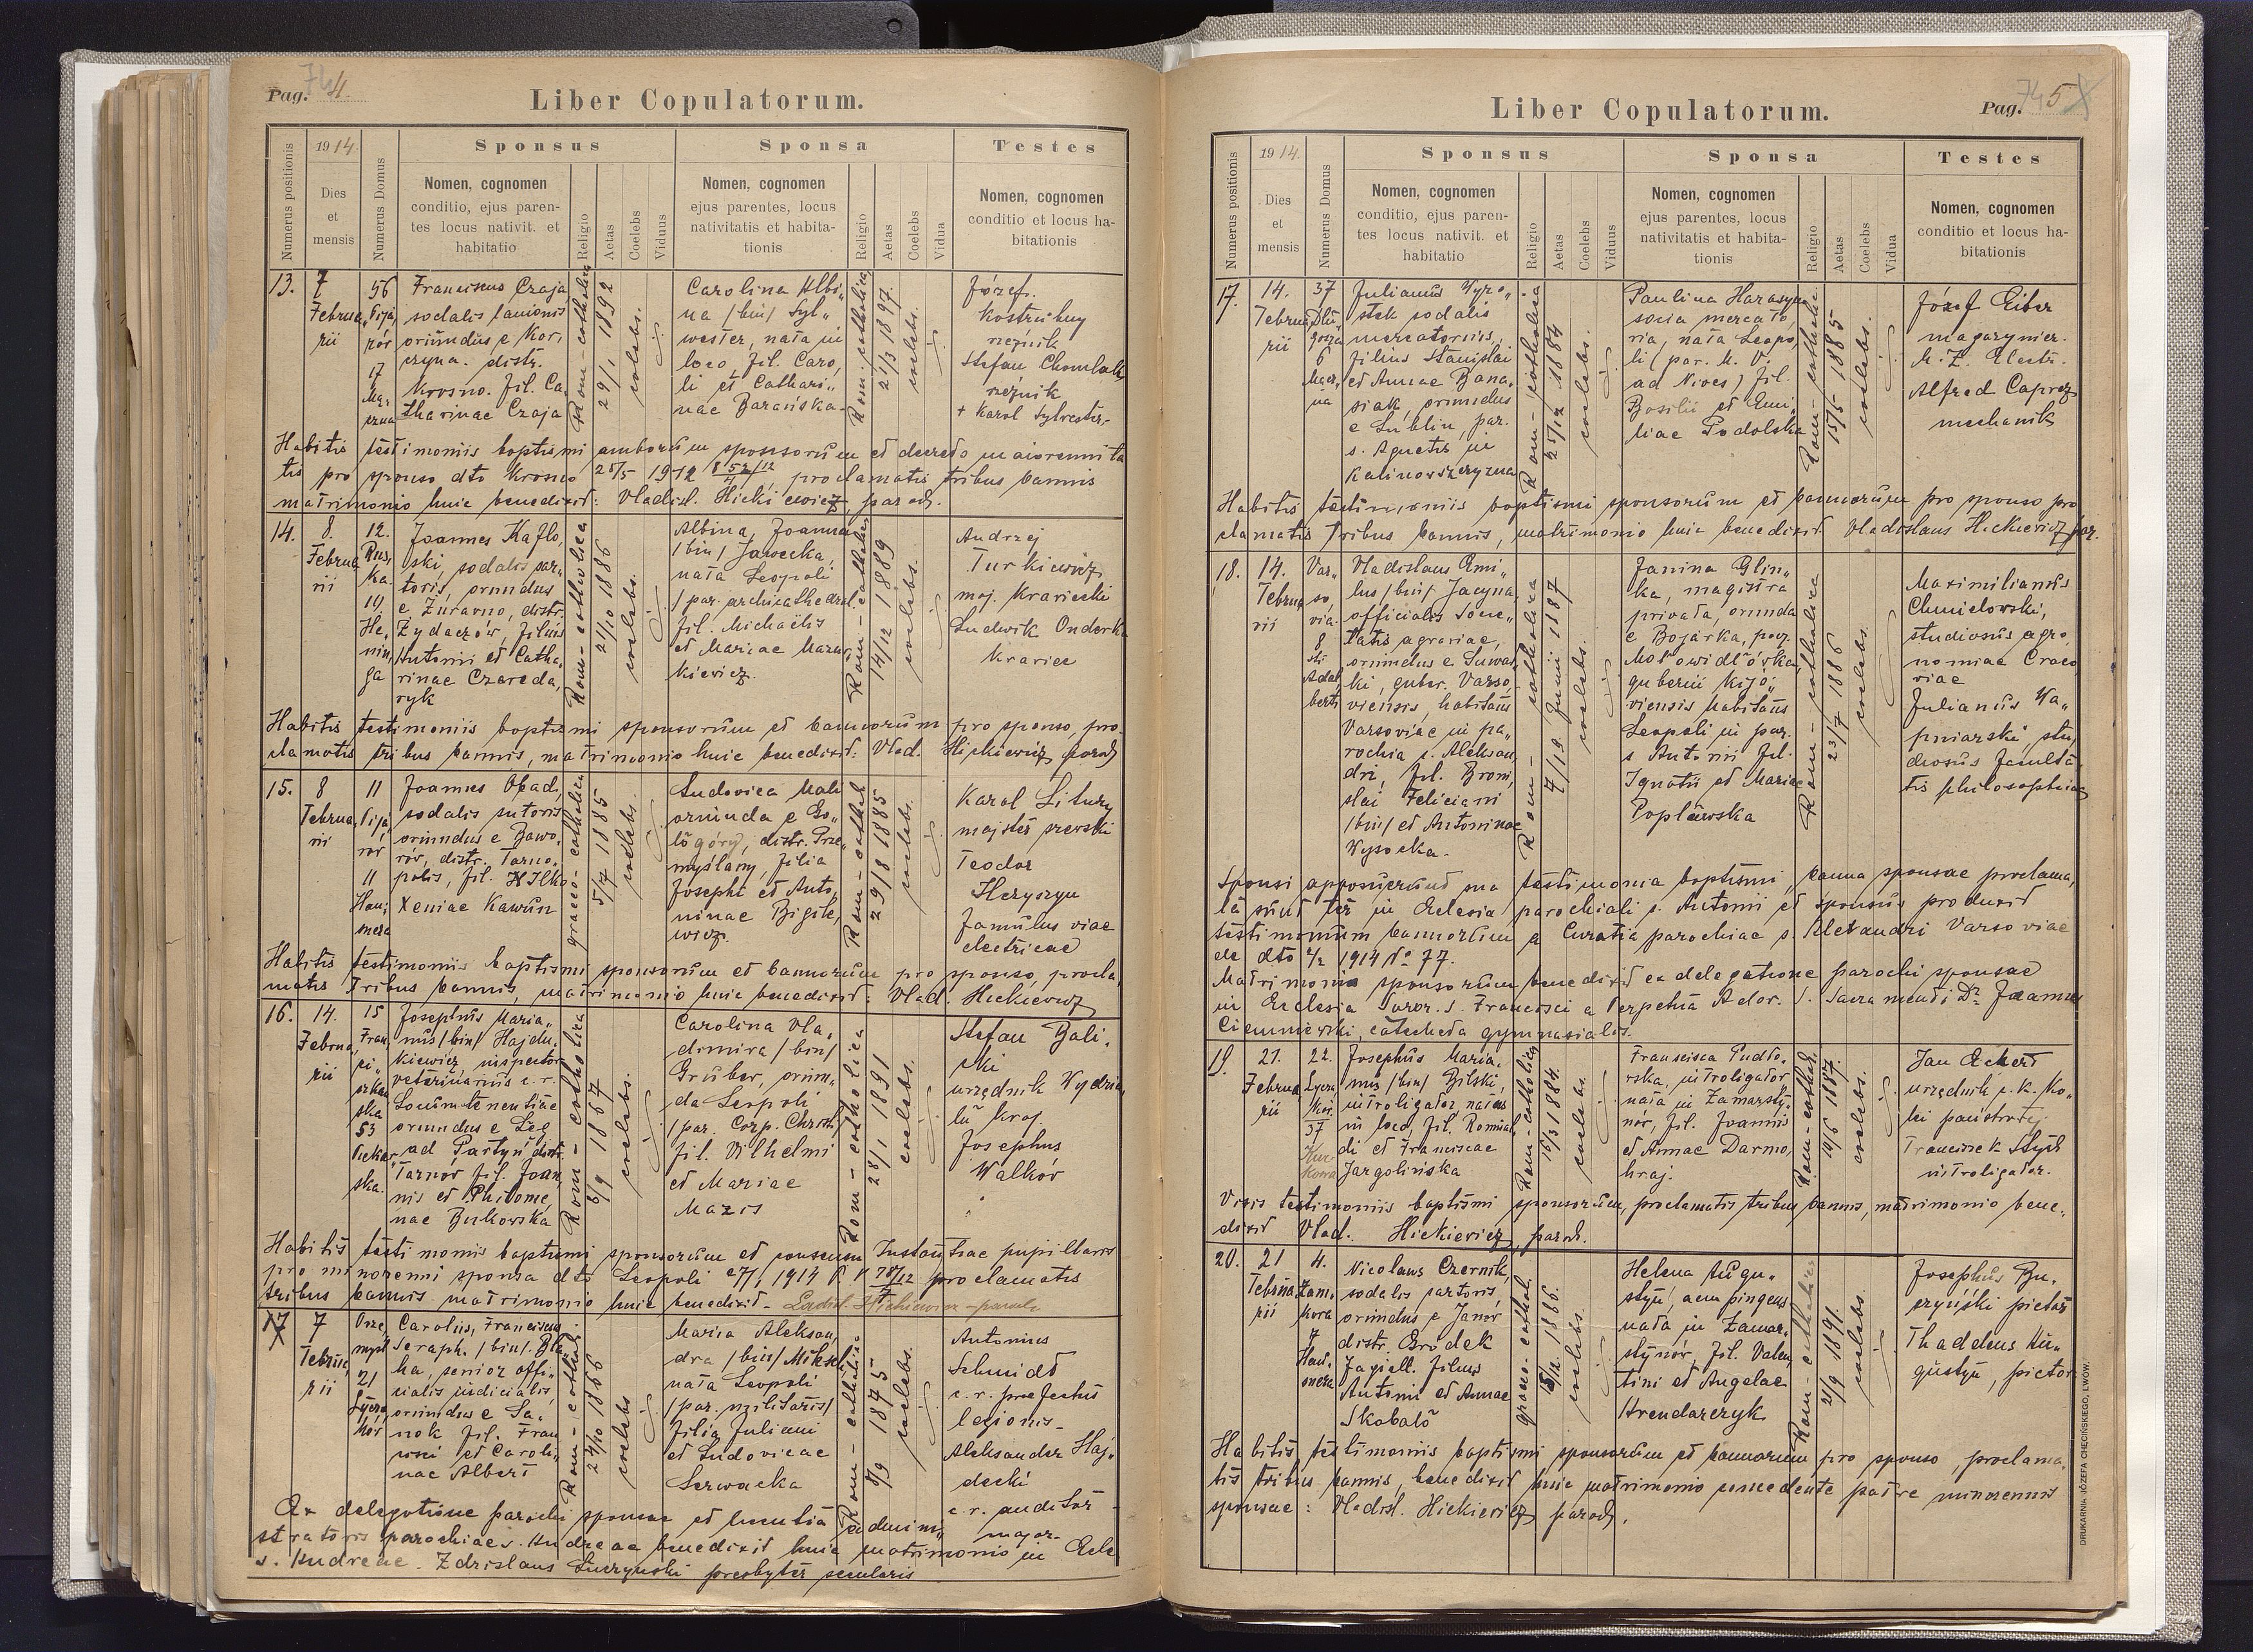 Pag. 4.
Liber Copulatorum.
Numerus positionis
1914.
Dies
et
mensis
Numerus Domus
Sponsus
Nomen, cognomen
conditio, ejus paren-
tes locus nativit. et
habitatio
Religio
Aetas
Coelebs
Viduus
Sponsa
Nomen, cognomen
ejus parentes, locus
nativitatis et habita-
tionis
Religio
Aetas
Coelebs
Vidua
Testes
Nomen, cognomen
conditio et locus ha-
bitationis
13.
7
Februa„
rii
56
Pija„
rów
17
Franciscus Czaja
sodalis lanionis
oriundus e Kor„
czyna. distr.
Krosno. fil. Ca„
tharinae Czaja
Rom-catholica
29/1 1892
coelebs.
Carolina Albi„
na /bin/ Syl„
wester, nata in
loco, fil. Caro„
li et Cathari„
nae Barańska-
Rom.-catholica
21/3 1897.
coelebs.
Józef
Kostrubny
rzeźnik
Stefan Chomlak
rzeźnik
+ Karol Sylvester-
Habitis testimoniis baptismi amborum sponsorum et decreto maiorennita
tis pro sponso dto Krosno 25/5 1912 proclamatis tribus bannis
matrimonio huic benedixit: Vladisl. Hickiewicz, paroch.
14.
8.
Februa
rii
12.
Rus„
ka.
19.
He„
nin„
ga
Joannes Kaflo„
ski, sodalis sar„
toris, oriundus
e Żurawno, distr.
Żydaczów, filius
Antonii et Catha„
rinae Czereda„
ryk
Rom-catholica
21/10 1886
coelebs.
Albina, Joanna
/bin/ Jawecka,
nata Leopoli
/par. archicathedral.
fil. Michaelis
et Mariae Mazur„
kiewicz.
Rom-catholica
14/12 1889
coelebs.
Andrzej
Turkiewicz
maj. krawiecki
Ludwik Onderka
krawiec
Habitis testimoniis baptismi sponsorum et bannorum pro sponso, pro„
clamatis tribus bannis, matrimonio huic benedixit: Vlad. Hickiewicz paroch
15.
8
Februa„
rii
11
Pija„
rów
11
Joannes Opad„
sodalis sutoris
oriundus e Zawo„
rów, distr. Tarno„
polis, fil. Ilko
Xeniae Kawün
graeco-catholica
5/7 1885
coelebs.
Ludovica Mali
oriunda e Go„
łógóry, distr. Prze„
myślany, filia
Josephi et Anto„
ninae Bigile„
wicz.
Rom-cathol
29/8 1885
coelebs.
Karol Litury
majster szewski
Teodor
Heryszyn
famulus viae
electricae
Habitis testimoniis baptismi sponsorum et bannorum pro sponso, procla„
matis tribus bannis, matrimonio huic benedixit: Vlad. Hickiewicz
16.
14.
Februa„
rii
15
Fran„
ci„
szkań
ska
53
Piekar„
ska.
Josephus Maria„
nus /bin/ Hajdu„
kiewicz, inspector
veterinarius c. r.
Locumtenentiae
oriundus e Łęg
ad Partyń distr.
Tarnów fil. Joan„
nis et Philome„
nae Bukowska
Rom-catholica
6/9 1867
coelebs.
Carolina Vla„
dimira /bin/
Gruber, oriun„
da Leopoli
/par. Corp. Christi
fil. Vilhelmi
et Mariae
Mazis
Rom-catholica
28/1 1891
coelebs.
Stefan Bali„
cki
urzędnik Wydzia„
łu kraj.
Josephus
Walków
Habitis testimoniis baptismi sponsorum et consensu Instantiae pupillaris
pro minorenni sponsa dto Leopoli 27/1 1914 proclamatis
tribus bannis matrimonio huic benedixit-Ladisl. Hickiewicz-paroch
17
7
Februa„
rii
21
Łycza„
ków
Carolus, Franciscus
Seraph. /bin/. Bla„
ha, senior offi„
cialis judicialis,
oriundus e Sa„
nok fil. Fran„
cisci et Caroli„
nae Albert
Rom-cathol.
24/10 1866
coelebs
Maria Aleksan„
dra /bin/ Miksch
nata Leopoli
/par. militaris/
filia Juliani
et Ludovicae
Serwacka
Rom-catholica
8/9 1875
coelebs.
Antonius
Schmidt
c. r. praefectus
legionis
Aleksander Haj„
decki
c. r. auditor
major.
Ex delegatione parochi sponsae et licentia admini„
stratoris parochiae s. Andreae benedixit huic matrimonio in Eccl.
s. Andreae. Zdzislaus Luczynski presbyter secularis
Liber Copulatorum.
Pag. 5
Numerus positionis
1914.
Dies
et
mensis
Numerus Domus
Sponsus
Nomen, cognomen
conditio, ejus paren-
tes locus nativit. et
habitatio
Religio
Aetas
Coelebs
Viduus
Sponsa
Nomen, cognomen
ejus parentes, locus
nativitatis et habita-
tionis
Religio
Aetas
Coelebs
Vidua
Testes
Nomen, cognomen
conditio et locus ha-
bitationis
17.
14.
Februa
rii
37
Dłu„
gosza
6
Julianus Wyro„
stek sodalis
mercatoriis,
filius Stanislai
et Annae Bana„
siak, oriundus
e Lublin, par.
s. Agnetis in
Kalinowszczyzna
Rom-catholica
25/12 1884
coelebs.
Paulina Harasym
socia mercato„
ria, nata Leopo„
li /par. M. V.
ad Nives/ fil.
Basilii et Emi„
liae Podolska
Rom-catholic
15/5 1885
coelebs.
Józef Giber
magazynier.
M. Z. Electr.
Alfred Caprez
mechanik
Habitis testimoniis baptismi sponsorum et bannorum pro sponso pro
clamatis tribus bannis, matrimonio huic benedixit. Vladislaus Hickiewicz par.
18.
14.
Februa
rii
Var„
so„
via.
8
sti
Adal
berti
Vladislaus Emi„
lus /bin/ Jacyna,
officialis Socie„
tatis agrariae,
oriundus e Suwał„
ki, guber. Varso„
viensis, habitans
Varsoviae in pa„
rochia s. Aleksan„
dri, fil. Broni„
slai Feliciani
/bin/ et Antoninae
Wysocka.
Rom-catholica
7/19 Junii 1887
coelebs.
Janina Glin„
ka, magistra
privata, oriunda
e Bojarka, pow.
Motowidłówka,
gubernii Kijo„
viensis habitans
Leopoli in par.
s Antonii fil.
Ignatii et Mariae
Popławska
Rom-catholica
23/7 1886
coelebs.
Maximilianus
Chmielowski,
studiosus agro„
nomiae Craco„
viae
Julianus Wa„
pniarski, stu„
diosus faculta„
tis philosophiae
Sponsi apposuerunt sua testimonia baptismi, banna sponsae proclama„
ta sunt ter in Ecclesia parochiali s. Antonii et sponsus produxit
testimonium bannorum a Curatia parochiae s. Alexandri Varsoviae
de dto 1914 No 77.
Matrimonio sponsorum benedixit ex delegatione parochi sponsae
in Ecclesia Soror. S. Francisci a Perpetua Ador. S. Sacramenti Dr Joannes
Ciemniewski, catecheta gymnasialis.
19.
21.
Februa
rii
22.
Łycza
ków.
37
Kur„
kowa
Josephus Maria„
nus /bin/ Bilski,
introligator, natus
in loco, fil. Romual„
di et Franciscae
Jargolińska
Rom-catholica
16/3 1884.
coelebs.
Francisca Pudło„
wska, introligator
nata in Zamarsty„
nów, fil. Joannis
et Annae Darmo„
hraj.
Rom-cathol.
14/6 1887.
coelebs.
Jan Eckert
urzędnik c. k. Ko„
lei państwowej
Franciszek Styś
introligator.
Visis testimoniis baptismi sponsorum, proclamatis tribus bannis, matrimonio bene„
dixit Vlad. Hickiewicz, paroch.
20.
21
Februa
rii
4.
Zam„
kowa
7
Nicolaus Czernik,
sodalis sartoris,
oriundus e Janów
distr. Gródek
Jagiell. filius
Antonii et Annae
Skobało
graeco-cathol.
1886.
coelebs.
Helena Augu„
styn, acu pingens
nata in Zamar„
stynów, fil. Valen„
tini et Angelae
Arendarczyk
Rom-catholica
2/9 1891.
coelebs.
Josephus Bu„
czyński pictor
Thaddeus Au„
gustyn, pictor
Habitis testimoniis baptismi sponsorum et bannorum pro sponso, proclama„
tis tribus bannis, benedixit huic matrimonio concedente patre minorennis
sponsae: Vladisl. Hickiewicz paroch.
DRUKARNIA JÓZEFA CHĘCIŃSKIEGO, LWÓW.